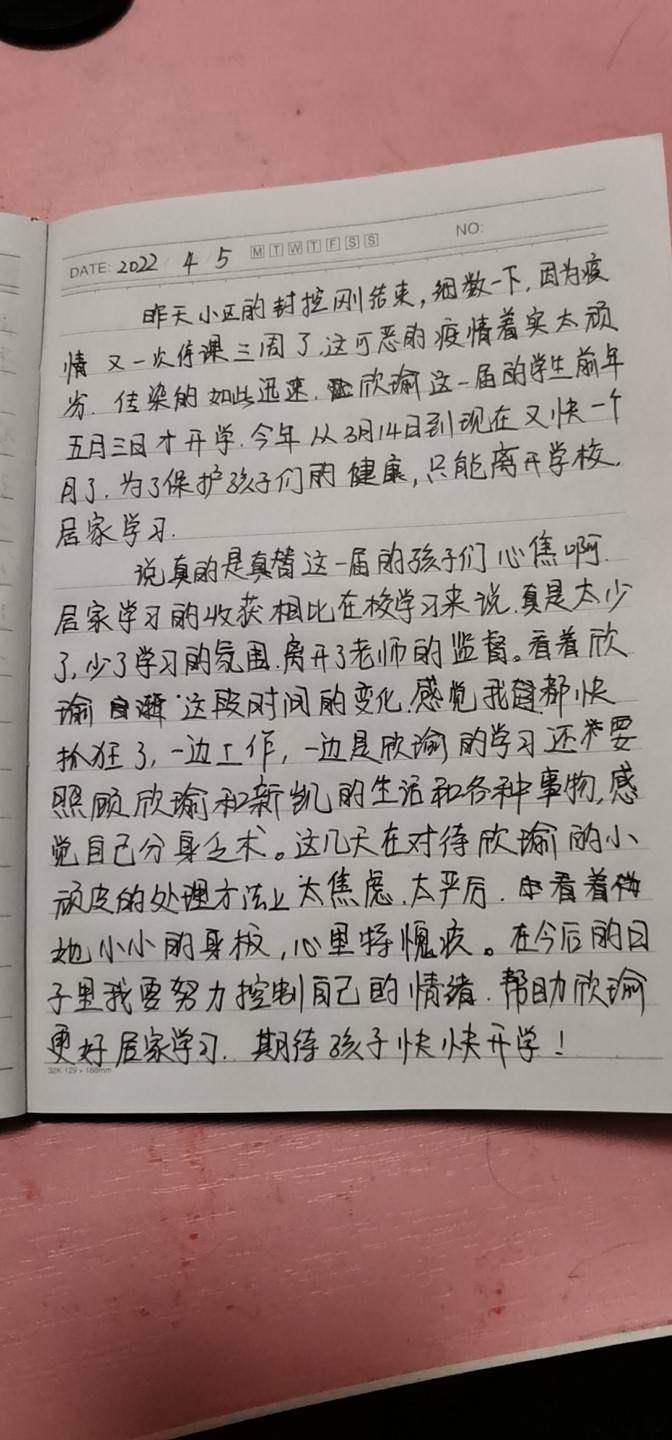 DATE: 2022 4 5 M T W T F S S NO:
昨天小区的封控刚结束,细数一下,因为疫
情又一次停课三周了.这可恶的疫情着实太顽
劣.传染的如此迅速.欣瑜这一届的学生前年
五月三日才开学.今年从3月14日到现在又快一个
月了.为了保护孩子们的健康,只能离开学校.
居家学习.
说真的是真替这一届的孩子们心焦啊.
居家学习的收获相比在校学习来说.真是太少
了,少了学习的氛围.离开了老师的监督。看着欣
瑜这段时间的变化.感觉我都快
抓狂了,一边工作,一边是欣瑜的学习还要
照顾欣瑜和新凯的生活和各种事物,感
觉自己分身乏术。这几天在对待欣瑜的小
顽皮的处理方法上太焦虑.太严厉.看着
她小小的身板,心里特愧疚。在今后的日
子里我要努力控制自己的情绪.帮助欣瑜
更好居家学习.期待孩子快快开学!
32K 129×188mm